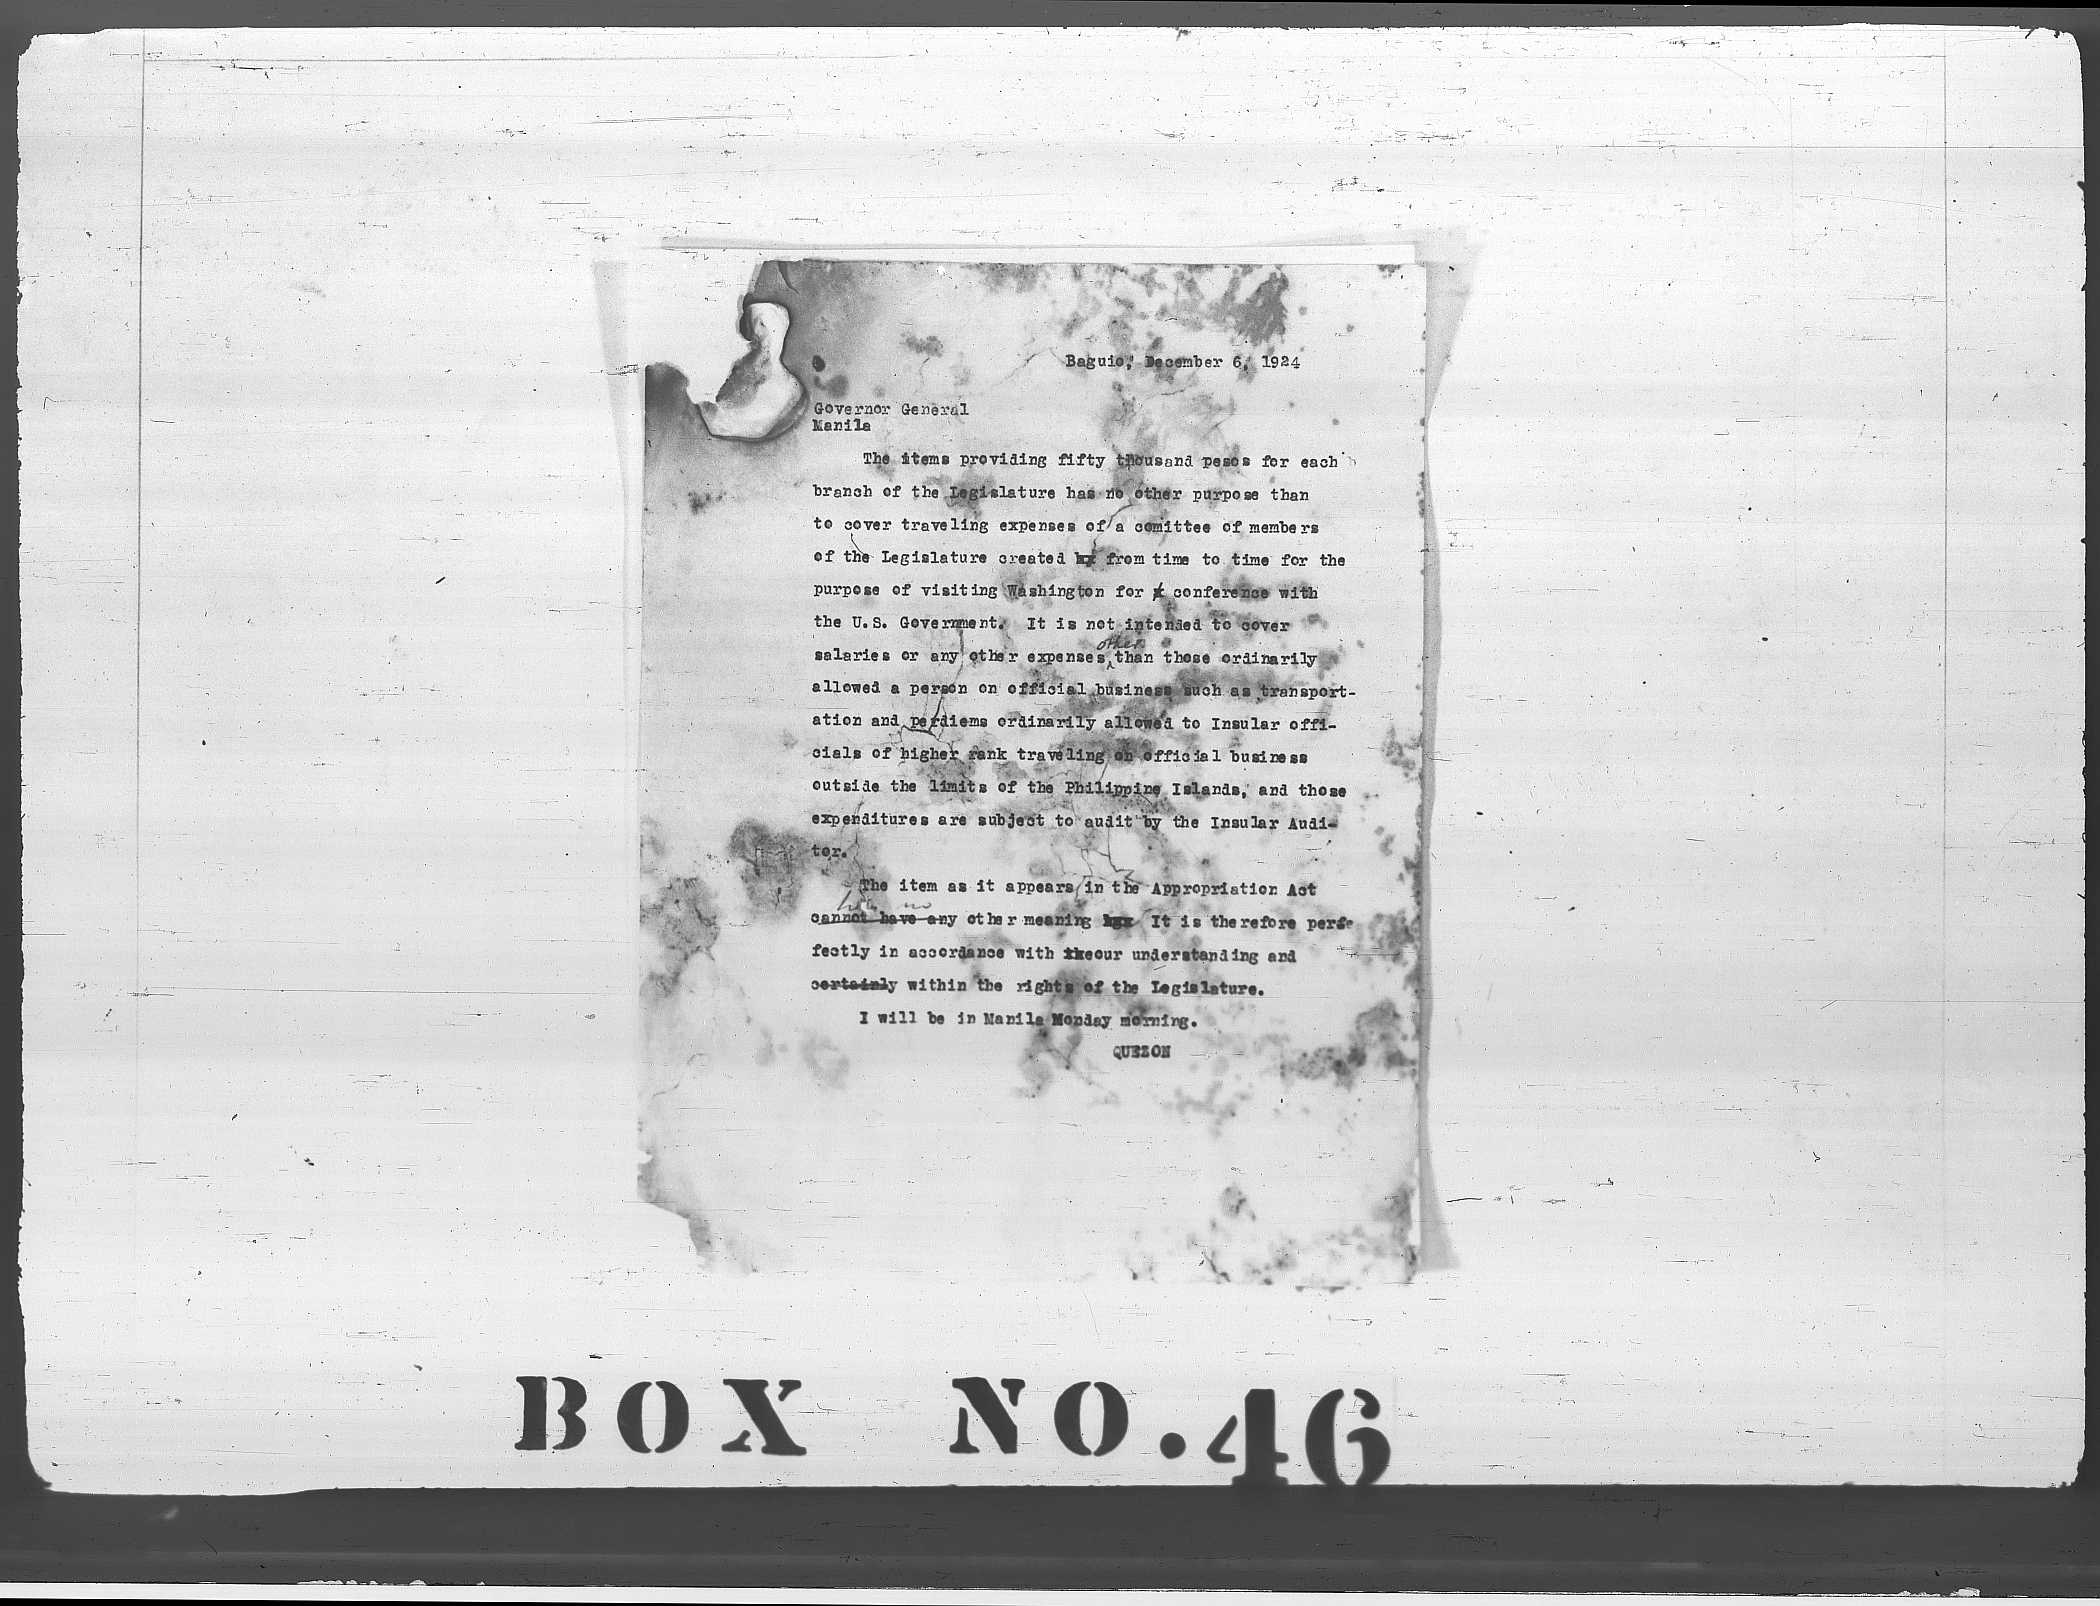 Baguio, December 6, 1924
Governor General
Manila
The items providing fifty thousand pesos for each
branch of the Legislature has no other purpose than
to cover traveling expenses of a comittee of members
of the Legislature created from time to time for the
purpose of visiting Washington for conference with
the U.S. Government. It is not intended to cover
other
salaries or any other expenses than those ordinarily
allowed a person on official business such as transport-
ation and perdiems ordinarily allowed to Insular offi-
cials of higher rank traveling on official business
outside the limits of the Philippine Islands, and those
expenditures are subject to audit by the Insular Audi-
tor.
The item as it appears in the Appropriation Act
has no
cannot have any other meaning It is therefore perfe
fectly in accordance with our understanding and
certainly within the rights of the Legislature.
I will be in Manila Monday morning.
QUEZON
BOX NO. 46